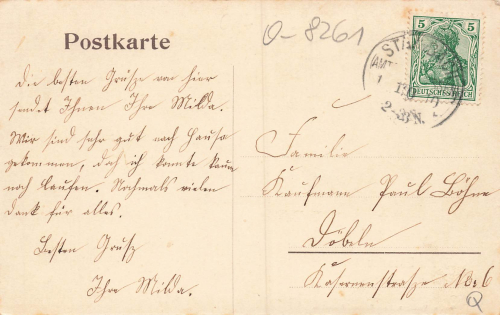 Postkarte
O-8261
5 5
DEUTSCHES REICH
Die besten Grüsze von hier
sendet Ihnen Ihre Milda.
Wir sind sehr gut nach Hause
gekommen, doch ich konnte kaum
noch laufen. Nochmals vielen
Dank für alles.
Besten Grusz
Ihre Milda.
Familie
Kaufmann Paul Böhme
Döbeln
Kasernenstrasze
Q